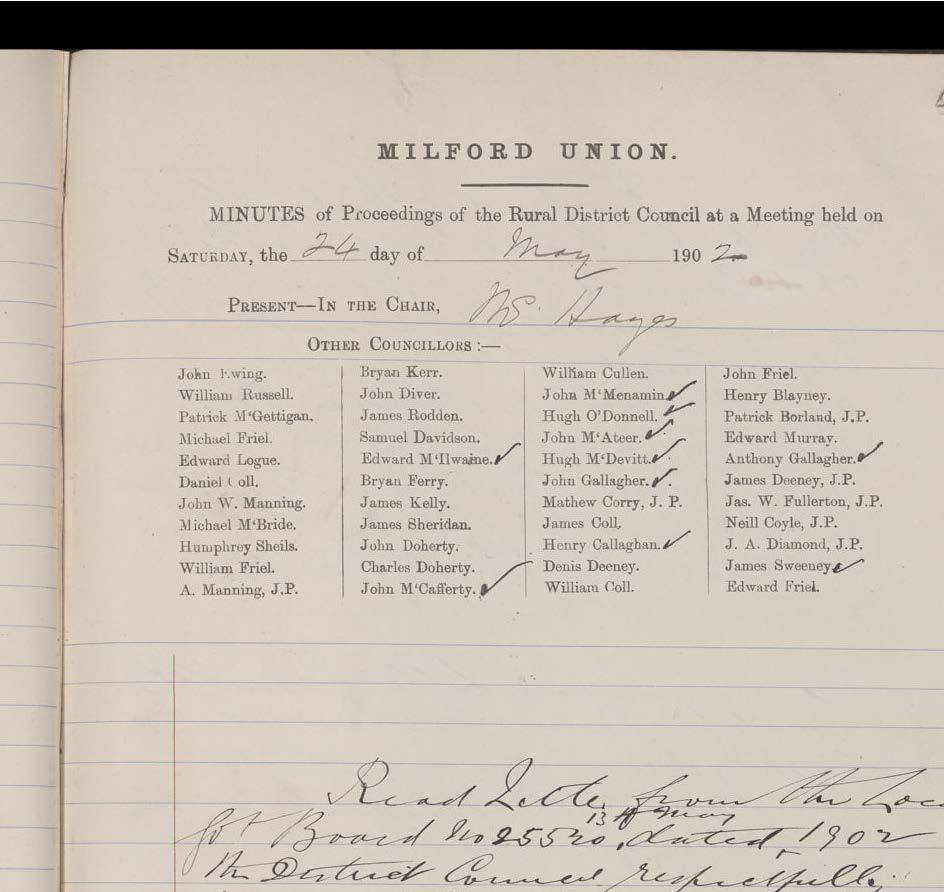 MILFORD UNION.
MINUTES of Proceedings of the Rural District Council at a Meeting held on
SATURDAY, the 24 day of May 1902
PRESENT—IN THE CHAIR, Mr. Hayes
OTHER COUNCILLORS :—
John Ewing.
William Russell.
Patrick M'Gettigan.
Michael Friel.
Edward Logue.
Daniel Coll.
John W. Manning.
Michael M'Bride.
Humphrey Sheils.
William Friel.
A. Manning, J.P.
Bryan Kerr.
John Diver.
James Rodden.
Samuel Davidson.
Edward M'Ilwaine. ✓
Bryan Ferry.
James Kelly.
James Sheridan.
John Doherty.
Charles Doherty.
John M'Cafferty. ✓
William Cullen.
John M'Menamin ✓
Hugh O'Donnell. ✓
John M'Ateer. ✓
Hugh M'Devitt. ✓
John Gallagher. ✓
Mathew Corry, J. P.
James Coll,
Henry Callaghan. ✓
Denis Deeney.
William Coll.
John Friel.
Henry Blayney.
Patrick Borland, J.P.
Edward Murray.
Anthony Gallagher. ✓
James Deeney, J.P.
Jas. W. Fullerton, J.P.
Neill Coyle, J.P.
J. A. Diamond, J.P.
James Sweeney ✓
Edward Friel.
Read Letter from the Loc
13th May
Govt Board No 25520, dated, 1902
the District Council respectfully